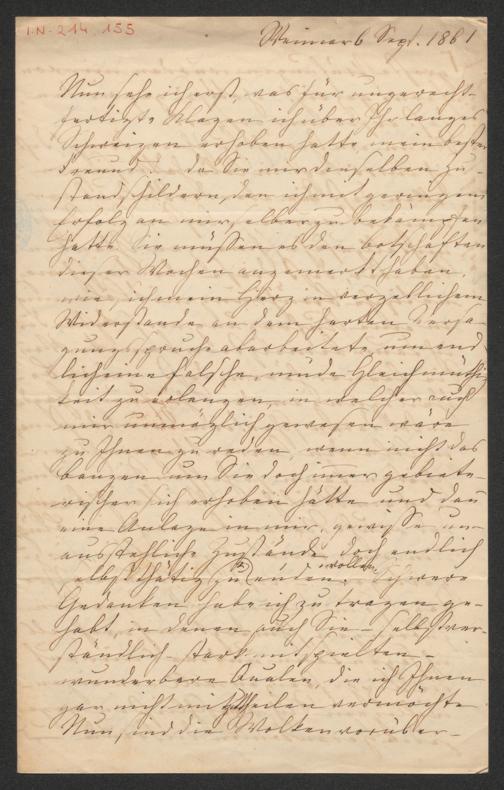 I.N. 214.155
Weimar 6 Sept. 1861
Nun sehe ich erst, was für ungerecht-
fertigte Klagen ich über Ihr langes
Schweigen erhoben hatte mein bester
Freund! da Sie mir denselben Zu-
stand schildern, den ich mit geringem
Erfolg an mir selber zu bekämpfen
hatte. Sie müssen es den Botschaften
dieser Wochen angemerkt haben,
wie ich mein Herz in vergeblichem
Widerstande an dem harten Versa-
gungsspruche abarbeitete, um end-
lich eine falsche, müde Gleichmüthig-
keit zu erlangen, in welcher auch
mir unmöglich gewesen wäre
zu Ihnen zu reden, wenn nicht das
bangen um Sie doch immer gebiete-
rischer sich erhoben hätte und dann
eine Anlage in mir, gewisse un-
ausstehliche Zustände doch endlich
selbstthätig zu enden. wollen
Schwere
Gedanken habe ich zu tragen ge-
habt, in denen auch Sie – selbstver-
ständlich – stark mitspielten –
wunderbare Qualen, die ich Ihnen
gar nicht mittheilen vermöchte
Nun sind die Wolken vorüber –